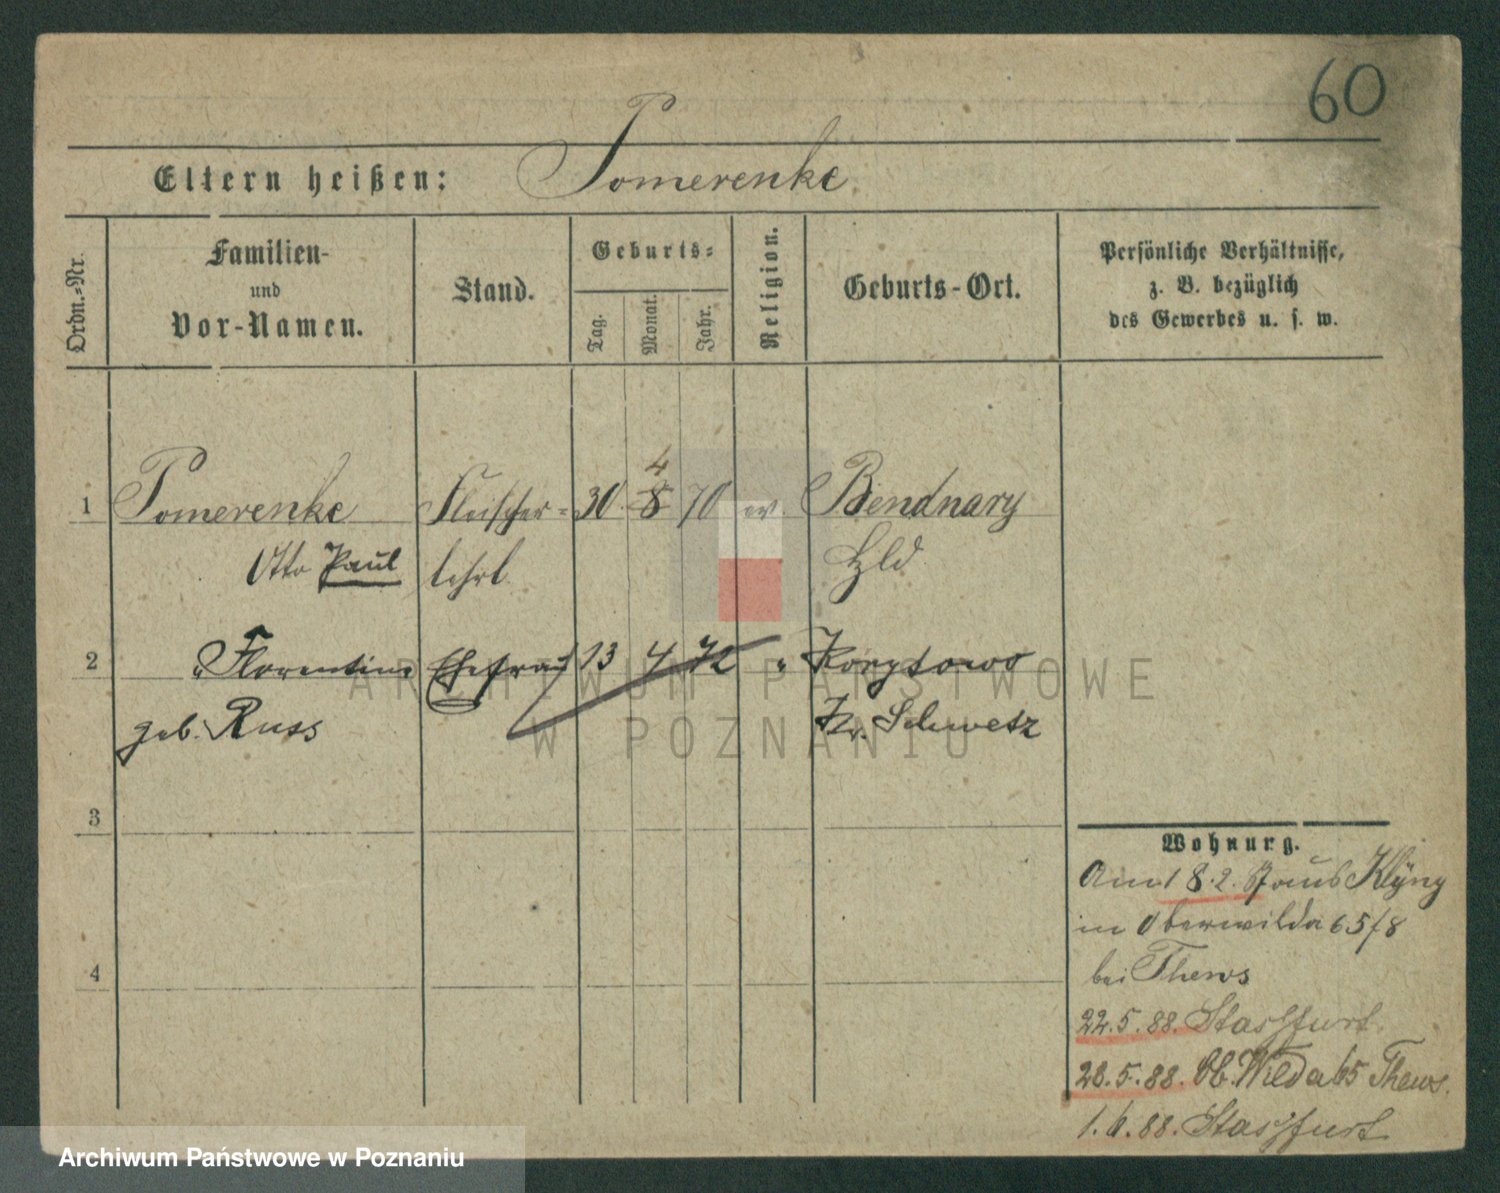 60
Eltern heißen: Pomerenke
Ordn.-Nr.
Familien-
und
Vor-Namen.
Stand.
Geburts-
Tag.
Monat.
Jahr.
Religion.
Geburts-Ort.
Persönliche Verhältnisse,
z. B. bezüglich
des Gewerbes u. s. w.
4
1 Pomerenke Fleischer- 30. 8 70 ev. Bendnary
Otto Paul lehrl.
2 " Florentine Ehefrau 13 4 72 " Korytowo
geb. Russ Kr. Schwetz
3
4
Wohnung.
8.2.
in Oberwilda 65/8
bei Thews
22.5.88. Stassfurt.
28.5.88. Ob. Wilda 65 Thews.
1.6.88. Stassfurt
ARCHIWUM PAŃSTWOWE
W POZNANIU
Archiwum Państwowe w Poznaniu